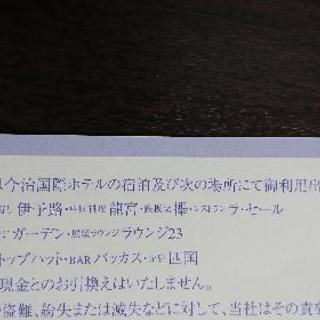 今治国際ホテルの宿泊及び次の場所にて御利用
伊予路・中国料理 龍宮・鉄板焼 欅・レストラン ラ・セール
ガーデン・展望ラウンジ ラウンジ23
トップハット・BAR バッカス・四国
現金とのお引換えはいたしません。
盗難、紛失または滅失などに対して、当社はその責を